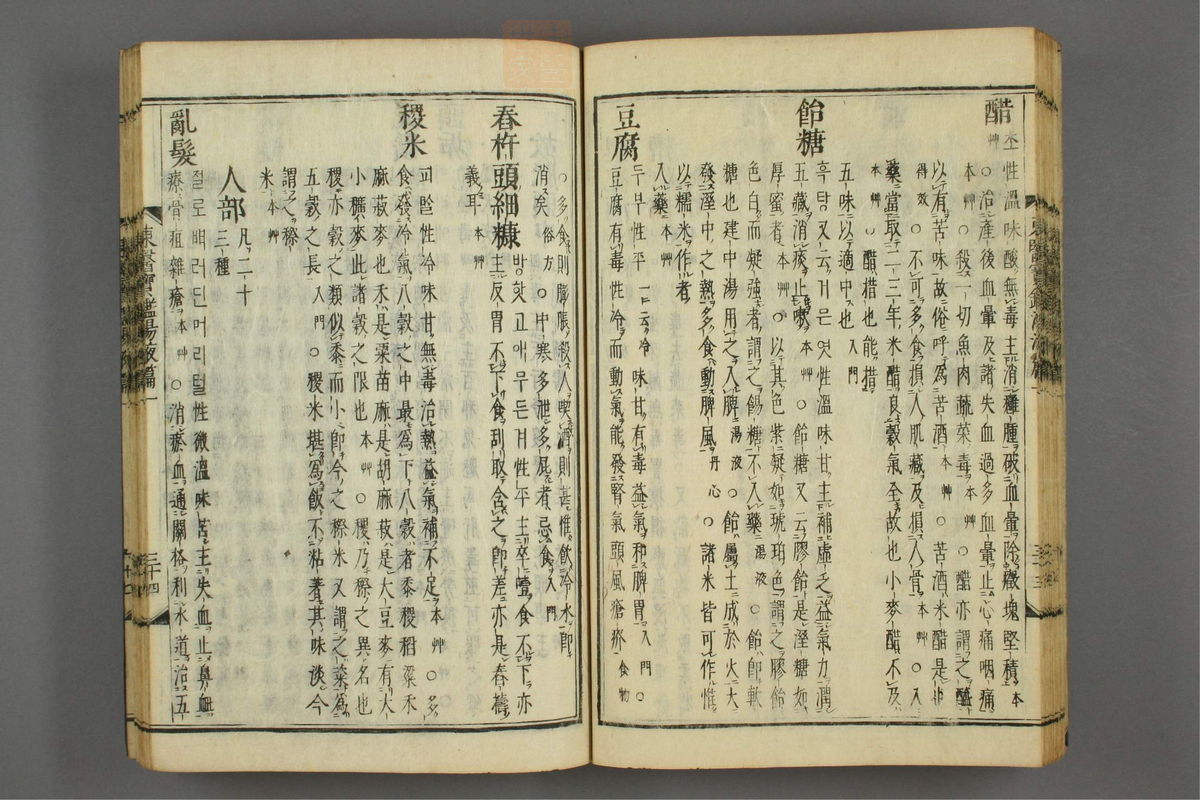 醋 초 性溫味酸無毒主消癰腫破血暈除癥塊堅積 本
艸 ○治產後血暈及諸失血過多血暈止心痛咽痛
本艸 ○殺一切魚肉蔬菜毒 本艸 ○醋亦謂之醯
以有苦味故俗呼爲苦酒 本艸 ○苦酒米醋是
得效 ○不可多食損人肌藏及損人骨 本艸 ○入
藥當取二三年米醋良穀氣全故也小麥醋不及
本艸 ○醋措也能措
五味以適中也 入門
飴糖 흑탕又云거믄엿性溫味甘主補虛乏益氣力潤
五藏消痰止嗽 本艸 ○飴糖又云膠飴是溼糖如
厚蜜者 本艸 ○以其色紫凝如琥珀色謂之膠飴
色白而凝強者謂之餳糖不入藥 湯液 ○飴卽軟
糖也建中湯用之入脾 湯液 ○飴屬土成於火大
發溼中之熱多食動脾風 丹心 ○諸米皆可作惟
以糯米作者
入藥 本艸
豆腐 두부性平 一云冷 味甘有毒益氣和脾胃 入門 ○
豆腐有毒性冷而動氣能發腎氣頭風瘡疥 食物
○多食則膨脹殺人喫酒則甚惟飮冷水卽
消矣 俗方 ○中寒多泄多屁者忌食 入門
舂杵頭細糠 방핫고애무든겨性平主卒噎食不下亦
主反胃不下食刮取含之卽差亦是舂擣
義耳 本艸
稷米 피ᄡᆞᆯ性冷味甘無毒治熱益氣補不足 本艸 ○多
食發冷氣八穀之中最爲下八穀者黍稷稻粱禾
麻菽麥也禾是粟苗麻是胡麻菽是大豆麥有大
小穬麥此諸穀之限也 本艸 ○稷乃穄之異名也
稷亦穀之類似黍而小卽今之穄米又謂之粢爲
五穀之長 入門 ○稷米堪爲飯不粘著其味淡今
謂之穄
米 本艸
人部 凡二十
三種
亂髮 절로ᄠᅥ러딘머리털性微溫味苦主失血止鼻衄
療骨疽雜瘡 本艸 ○消瘀血通關格利水道治五
東醫寶鑑湯液篇 一
三十四